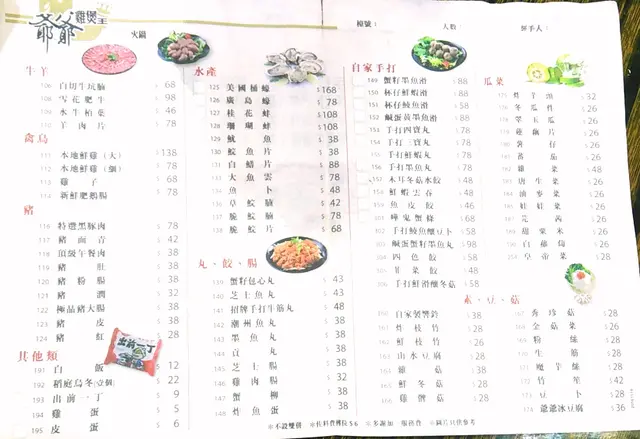 爺爺
雞煲王
火鍋
檯號：
人數：
經手人：
牛羊
106 白切牛坑腩 $ 68
108 雪花肥牛 $ 98
109 水牛柏葉 $ 46
110 羊肉片 $ 78
禽鳥
111 本地鮮雞(大) $138
112 本地鮮雞(細) $ 78
113 雞子 $ 68
114 新鮮肥鵝腸 $ 78
豬
116 特選黑豚肉 $ 78
117 豬面青 $ 42
118 頂級午餐肉 $ 38
119 豬肚 $ 38
120 豬粉腸 $ 38
121 豬潤 $ 32
122 極品豬大腸 $ 38
123 豬皮 $ 38
124 豬紅 $ 28
其他類
191 白飯 $ 12
192 稻庭烏冬(壹個) $ 22
193 出前一丁 $ 9
194 雞蛋 $ 5
195 皮蛋 $ 6
出前一丁
水產
125 美國桶蠔 $168
126 廣島蠔 $ 78
127 桂花蚌 $108
128 珊瑚蚌 $108
129 魷魚 $ 38
130 鯇魚片 $ 38
131 白鱔片 $ 88
133 大魚雲 $ 78
134 魚卜 $ 48
136 草鯇腩 $ 42
137 脆鯇腩 $ 78
138 脆鯇片 $ 68
丸、餃、腸
139 蟹籽包心丸 $ 43
140 芝士魚丸 $ 43
141 招牌手打牛筋丸 $ 48
142 潮州魚丸 $ 38
143 墨魚丸 $ 38
144 貢丸 $ 38
145 芝士腸 $ 38
146 雞肉腸 $ 32
147 蟹柳 $ 38
148 炸魚蛋 $ 38
自家手打
149 蟹籽墨魚滑 $ 88
150 杯仔鮮蝦滑 $ 58
151 杯仔鯪魚滑 $ 58
152 鹹蛋黃墨魚滑 $ 88
手打四寶丸 $ 78
手打三寶丸 $ 58
手打墨魚丸 $ 58
手打鯪魚丸 $ 48
木耳冬菇水餃 $ 48
158 鮮蝦雲吞 $ 48
159 魚皮餃 $ 46
161 蟑鬼蟹條 $ 68
102 手打鯪魚釀豆卜 $ 58
103 鹹蛋蟹籽墨魚丸 $ 98
104 四色餃 $ 58
105 韮菜餃 $ 48
106 手打鮮滑釀冬菇 $ 58
瓜菜
175 炸芋頭 $ 32
176 冬瓜件 $ 28
178 翠玉瓜 $ 28
179 蓮藕片 $ 28
180 薯仔 $ 28
181 蕃茄 $ 28
182 雞菜 $ 48
183 唐生菜 $ 28
184 油麥菜 $ 28
185 娃娃菜 $ 28
187 芫茜 $ 26
188 甜粟米 $ 28
126 白蘿蔔 $ 28
254 皇帝菜 $ 38
素、豆、菇
160 自家製響鈴 $ 38
161 炸枝竹 $ 28
162 鮮枝竹 $ 28
163 山水豆腐 $ 28
164 雞菇 $ 38
165 鮮冬菇 $ 28
166 雞髀菇 $ 28
167 秀珍菇 $ 28
168 金菇菜 $ 28
169 粉絲 $ 28
170 生筋 $ 28
171 魔芋絲 $ 28
172 竹笙 $ 42
173 豆卜 $ 28
174 爺爺冰豆腐 $ 36
※不設雙併 ※佐料費每位$6 ※多謝加一服務費 ※圖片只供參考